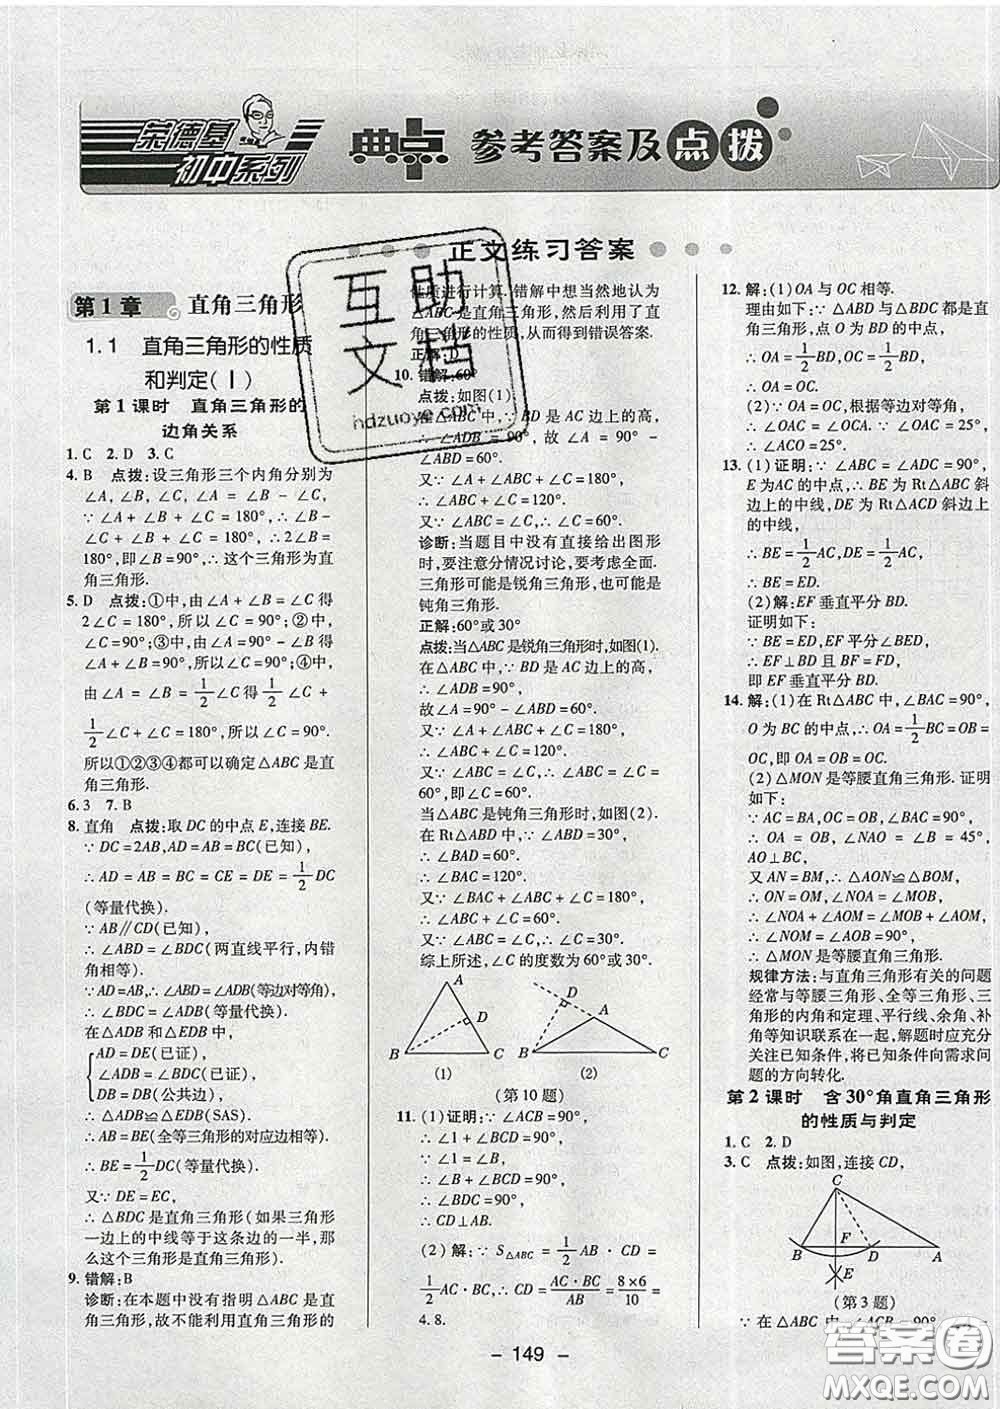 荣德基
初中系列
典点 参考答案及点拨
正文练习答案
第1章 直角三角形
1.1 直角三角形的性质
和判定(Ⅰ)
第1课时 直角三角形的
边角关系
1. C 2. D 3. C
4. B 点拨:设三角形三个内角分别为
∠A, ∠B, ∠C, ∠A + ∠B = ∠C,
∵ ∠A + ∠B + ∠C = 180°, ∴ ∠B +
∠A + ∠C = 180°, ∴ 2∠B =
180°,即∠B = 90°. ∴ 这个三角形为直
角三角形.
5. D 点拨:①中,由∠A + ∠B = ∠C 得
2∠C = 180°,所以∠C = 90°;②中,
∠C = 90°;③中,由∠A = 90° − ∠B 得
∠A + ∠B = 90°,所以∠C = 90°;④中,
由∠A = ∠B = 1/2∠C 得 1/2∠C +
1/2∠C + ∠C = 180°,所以∠C = 90°.
所以①②③④都可以确定△ABC是直
角三角形.
6. 3 7. B
8. 直角 点拨:取DC的中点E,连接BE.
∵ DC = 2AB, AD = AB(已知),
∴ AD = AB = CE = DE = 1/2 DC
(等量代换).
∵ AB∥CD(已知),
∴ ∠ABD = ∠BDC(两直线平行,内错
角相等).
∵ AD = AB, ∴ ∠ABD = ∠ADB(等边对等角),
∴ ∠BDC = ∠ADB(等量代换).
在△ADB和△EDB中,
AD = DE(已证),
∠ADB = ∠BDC(已证),
DB = DB(公共边),
∴ △ADB≌△EDB(SAS).
∴ AB = BE(全等三角形的对应边相等).
∴ BE = 1/2 DC(等量代换).
又∵ DE = EC,
∴ △BDC是直角三角形(如果三角形
一边上的中线等于这条边的一半,那
么这个三角形是直角三角形).
9. 错解:B
诊断:在本题中没有指明△ABC是直
角三角形,故不能利用直角三角形的
性质进行计算.错解中想当然地认为
△ABC是直角三角形,然后利用了直
角三角形的性质,从而得到错误答案.
正解:D
10. 错解:60°
点拨:如图(1),
在△ABC中, ∵ BD是AC边上的高,
∴ ∠ADB = 90°, 故∠A = 90° −
∠ABD = 60°.
又∵ ∠A + ∠ABC + ∠C = 180°,
∴ ∠ABC + ∠C = 120°.
又∵ ∠ABC = ∠C, ∴ ∠C = 60°.
诊断:当题目中没有直接给出图形
时,要注意分情况讨论,要考虑全面.
三角形可能是锐角三角形,也可能是
钝角三角形.
正解:60°或30°
点拨:△ABC是锐角三角形时,如图(1).
在△ABC中, ∵ BD是AC边上的高,
∴ ∠ADB = 90°.
故∠A = 90° − ∠ABD = 60°.
又∵ ∠A + ∠ABC + ∠C = 180°,
∴ ∠ABC + ∠C = 120°.
又∵ ∠ABC = ∠C, ∴ ∠ABC + ∠C =
60°,即∠C = 60°.
当△ABC是钝角三角形时,如图(2).
在Rt△ABD中, ∵ ∠ABD = 30°,
∴ ∠BAD = 60°.
∴ ∠BAC = 120°.
又∵ ∠BAC + ∠ABC + ∠C = 180°,
∴ ∠ABC + ∠C = 60°.
又∵ ∠ABC = ∠C, ∴ ∠C = 30°.
综上所述,∠C的度数为60°或30°.
A D B C (1)
D A B C (2)
(第10题)
11. (1)证明: ∵ ∠ACB = 90°,
∴ ∠1 + ∠BCD = 90°.
又∵ ∠1 = ∠B,
∴ ∠B + ∠BCD = 90°,
∴ ∠BDC = 90°,
∴ CD⊥AB.
(2)解: ∵ S△ABC = 1/2 AB · CD =
1/2 AC · BC, ∴ CD = AC·BC/AB = 8×6/10 =
4.8.
12. 解:(1)OA与OC相等.
理由如下: ∵ △ABD与△BDC都是直
角三角形,点O为BD的中点,
∴ OA = 1/2 BD, OC = 1/2 BD,
∴ OA = OC.
(2) ∵ OA = OC,根据等边对等角,
∴ ∠OAC = ∠OCA. ∵ ∠OAC = 25°,
∴ ∠ACO = 25°.
13. (1)证明: ∵ ∠ABC = ∠ADC = 90°,
E为AC的中点, ∴ BE为Rt△ABC斜
边上的中线,DE为Rt△ACD斜边上
的中线,
∴ BE = 1/2 AC, DE = 1/2 AC,
∴ BE = ED.
(2)解:EF垂直平分BD.
证明如下:
∵ BE = ED, EF平分∠BED,
∴ EF⊥BD且EF平分BD,
即EF垂直平分BD.
14. 解:(1)在Rt△ABC中,∠BAC = 90°,
O为BC的中点, ∴ OA = 1/2 BC = OB =
OC,即OA = OB = OC.
(2)△MON是等腰直角三角形.证明
如下:
∵ AC = BA, OC = OB, ∠BAC = 90°,
∴ OA = OB, ∠NAO = ∠B = 45°,
AO⊥BC,
又AN = BM, ∴ △AON≌△BOM,
∴ ON = OM, ∠NOA = ∠MOB,
∴ ∠NOA + ∠AOM = ∠MOB + ∠AOM,
∴ ∠NOM = ∠AOB = 90°,
∴ △MON是等腰直角三角形.
规律方法:与直角三角形有关的问题
经常与等腰三角形、全等三角形、三
角形的内角和定理、平行线、余角、补
角等知识联系在一起,解题时应充分
关注已知条件,将已知条件向需求问
题的方向转化.
第2课时 含30°角直角三角形
的性质与判定
1. C 2. D
3. C 点拨:如图,连接CD,
C B F D A E
(第3题)
∵ 在△ABC中, ∠ACB = 90°,
- 149 -
互助文档
hdzuoye.com
答案圈
MXQE.COM